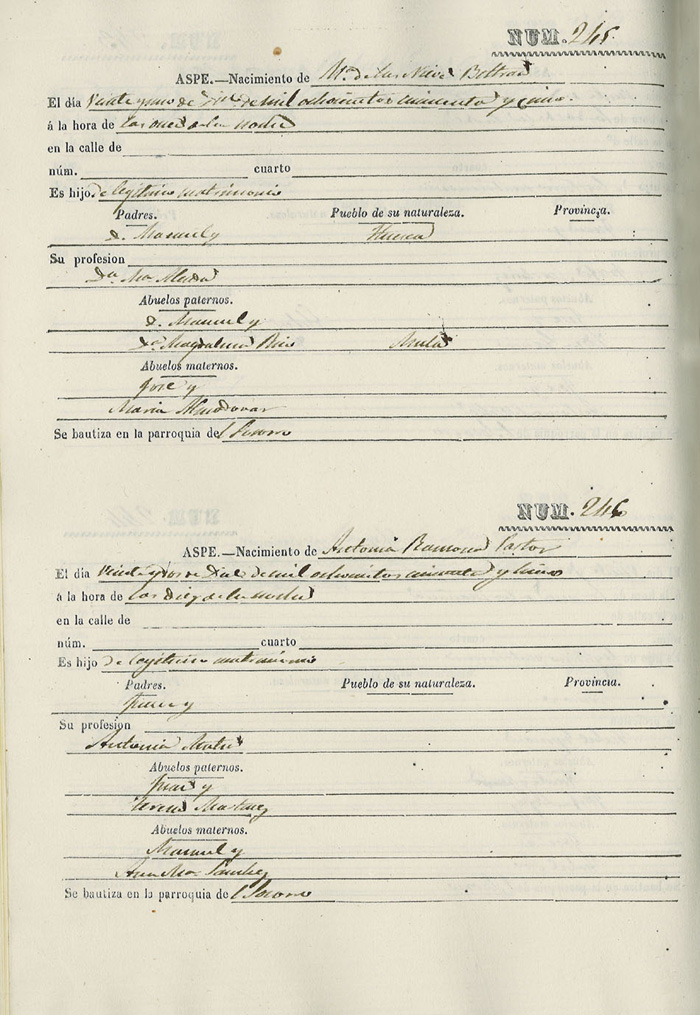 NUM. 245
ASPE.—Nacimiento de Mª de las Nieves Beltran
El día Veinte y uno de de mil ochocientos cincuenta y cinco.
á la hora de las once de la noche
en la calle de
núm. cuarto
Es hijo de legitimo matrimonio
Padres. Pueblo de su naturaleza. Provincia.
D. Manuel y Huesca
Su profesion
Dª Mª
Abuelos paternos.
D. Manuel y
Dª Magdalena Mula
Abuelos maternos.
José y
Maria Almodovar
Se bautiza en la parroquia del Socorro
NUM. 246
ASPE.—Nacimiento de Antonia Ramona Pastor
El día Veinte y dos de de mil ochocientos cincuenta y cinco
á la hora de las diez de la noche
en la calle de
núm. cuarto
Es hijo de legitimo matrimonio
Padres. Pueblo de su naturaleza. Provincia.
y
Su profesion
Antonia
Abuelos paternos.
y
Teresa Martinez
Abuelos maternos.
Manuel y
Ana Mª Sanchez
Se bautiza en la parroquia del Socorro